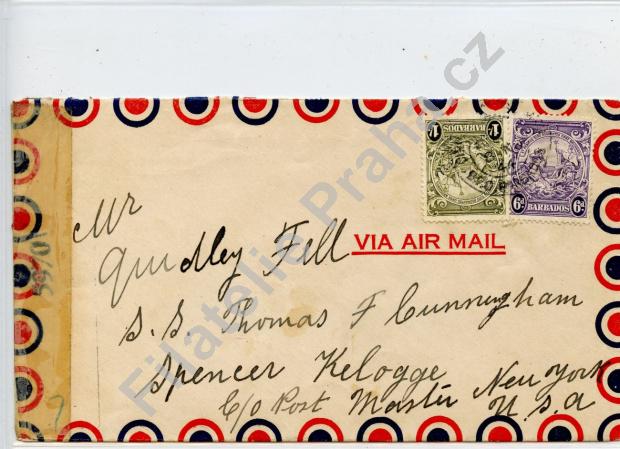 1/- 1/-
BARBADOS
6d 6d
BARBADOS
Mr
Quidley Fell
VIA AIR MAIL
S.S. Thomas F Cunningham
Spencer Kelogge
C/o Post Master New York
U.S.A
Filatelie Praha.cz